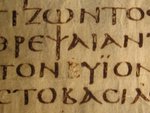 ΙΖΩΝΤΟϹ
ΘΡΕΨΑΙΑΝΤ
ΤΟΝΥΪΟΝ
ϹΤΟΒΑϹΙΛ